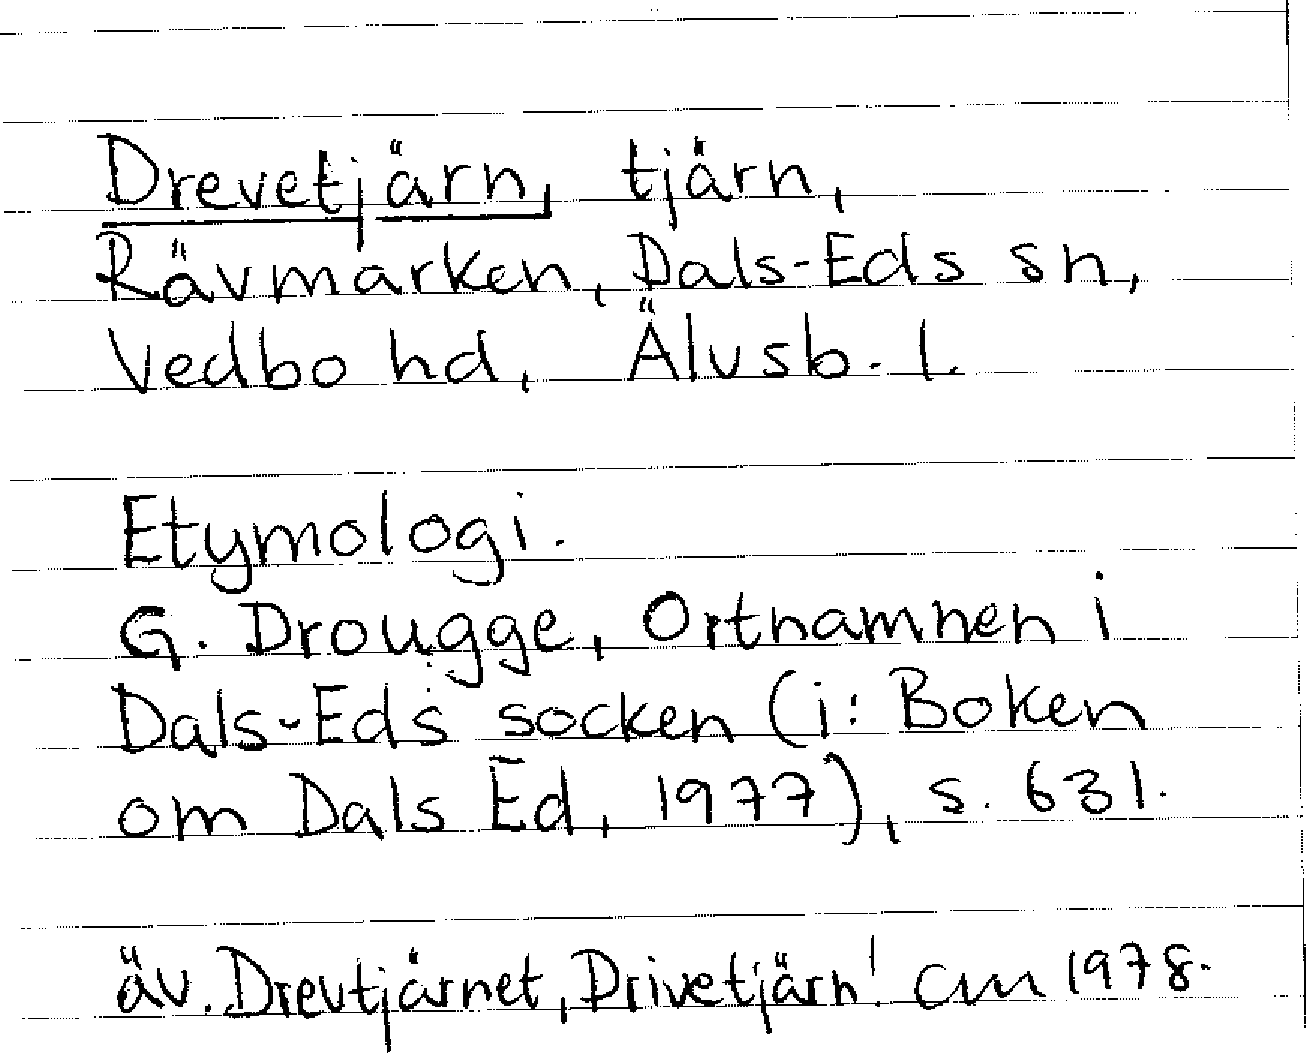 Drevetjärn, tjärn,
Rävmarken, Dals-Eds sn,
Vedbo hd, Älvsb. l.
Etymologi.
G. Drougge, Ortnamnen i
Dals-Eds socken (i: Boken
om Dals Ed, 1977), s. 631.
äv. Drevtjärnet, Drivetjärn! CM 1978.